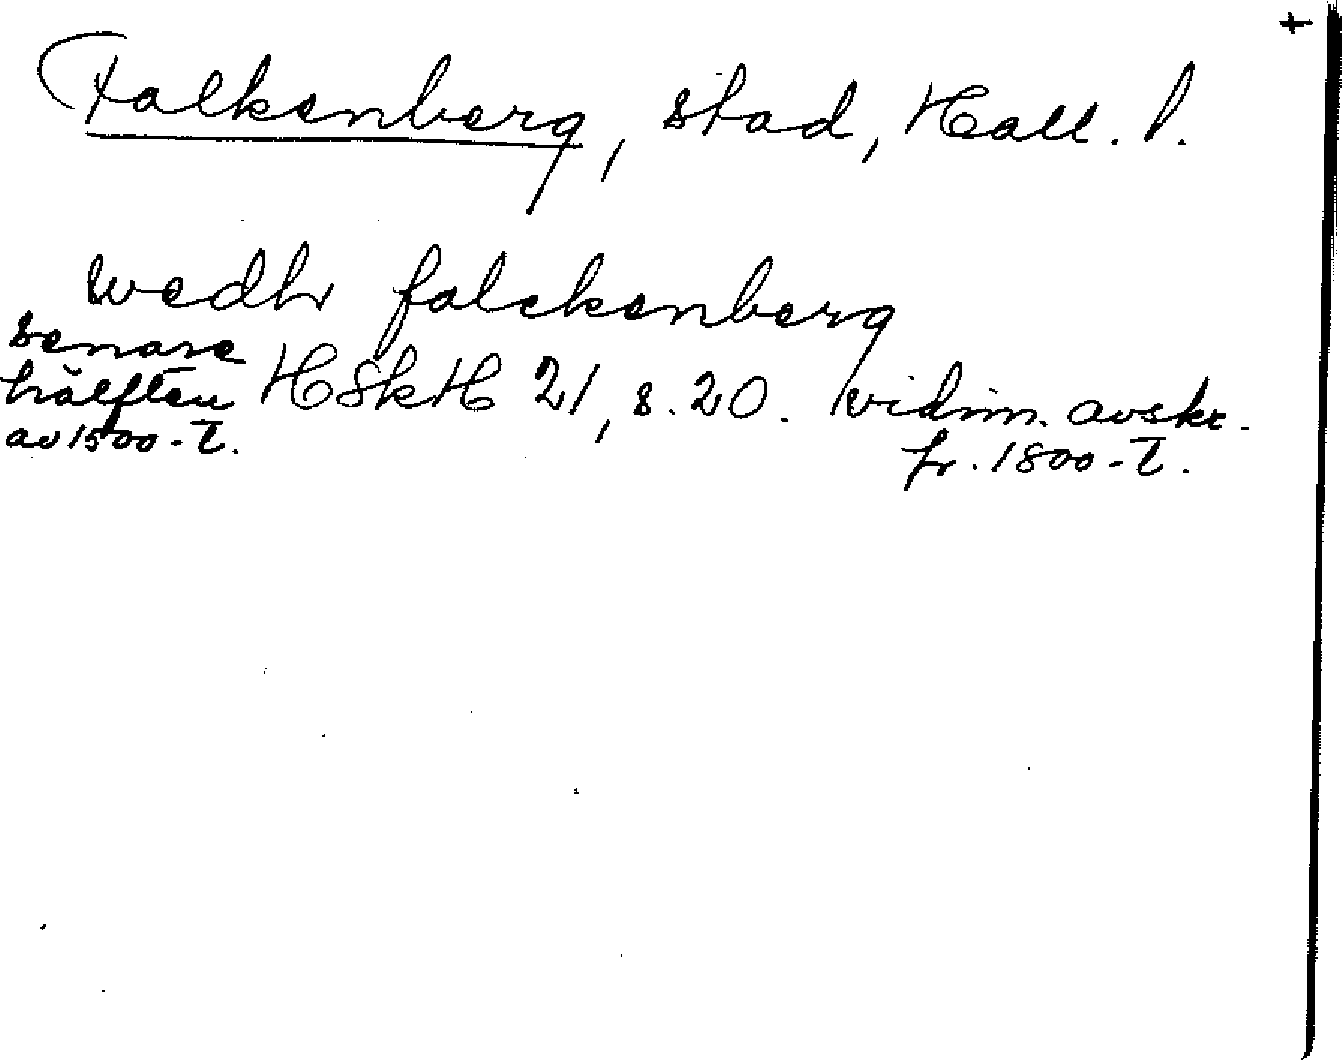 +
Falkenberg, stad, Hall. l.
wedh falckenberg
senare
hälften HSkH 21, s. 20. vidim. avskr.
av 1500-t.
fr. 1800-t.